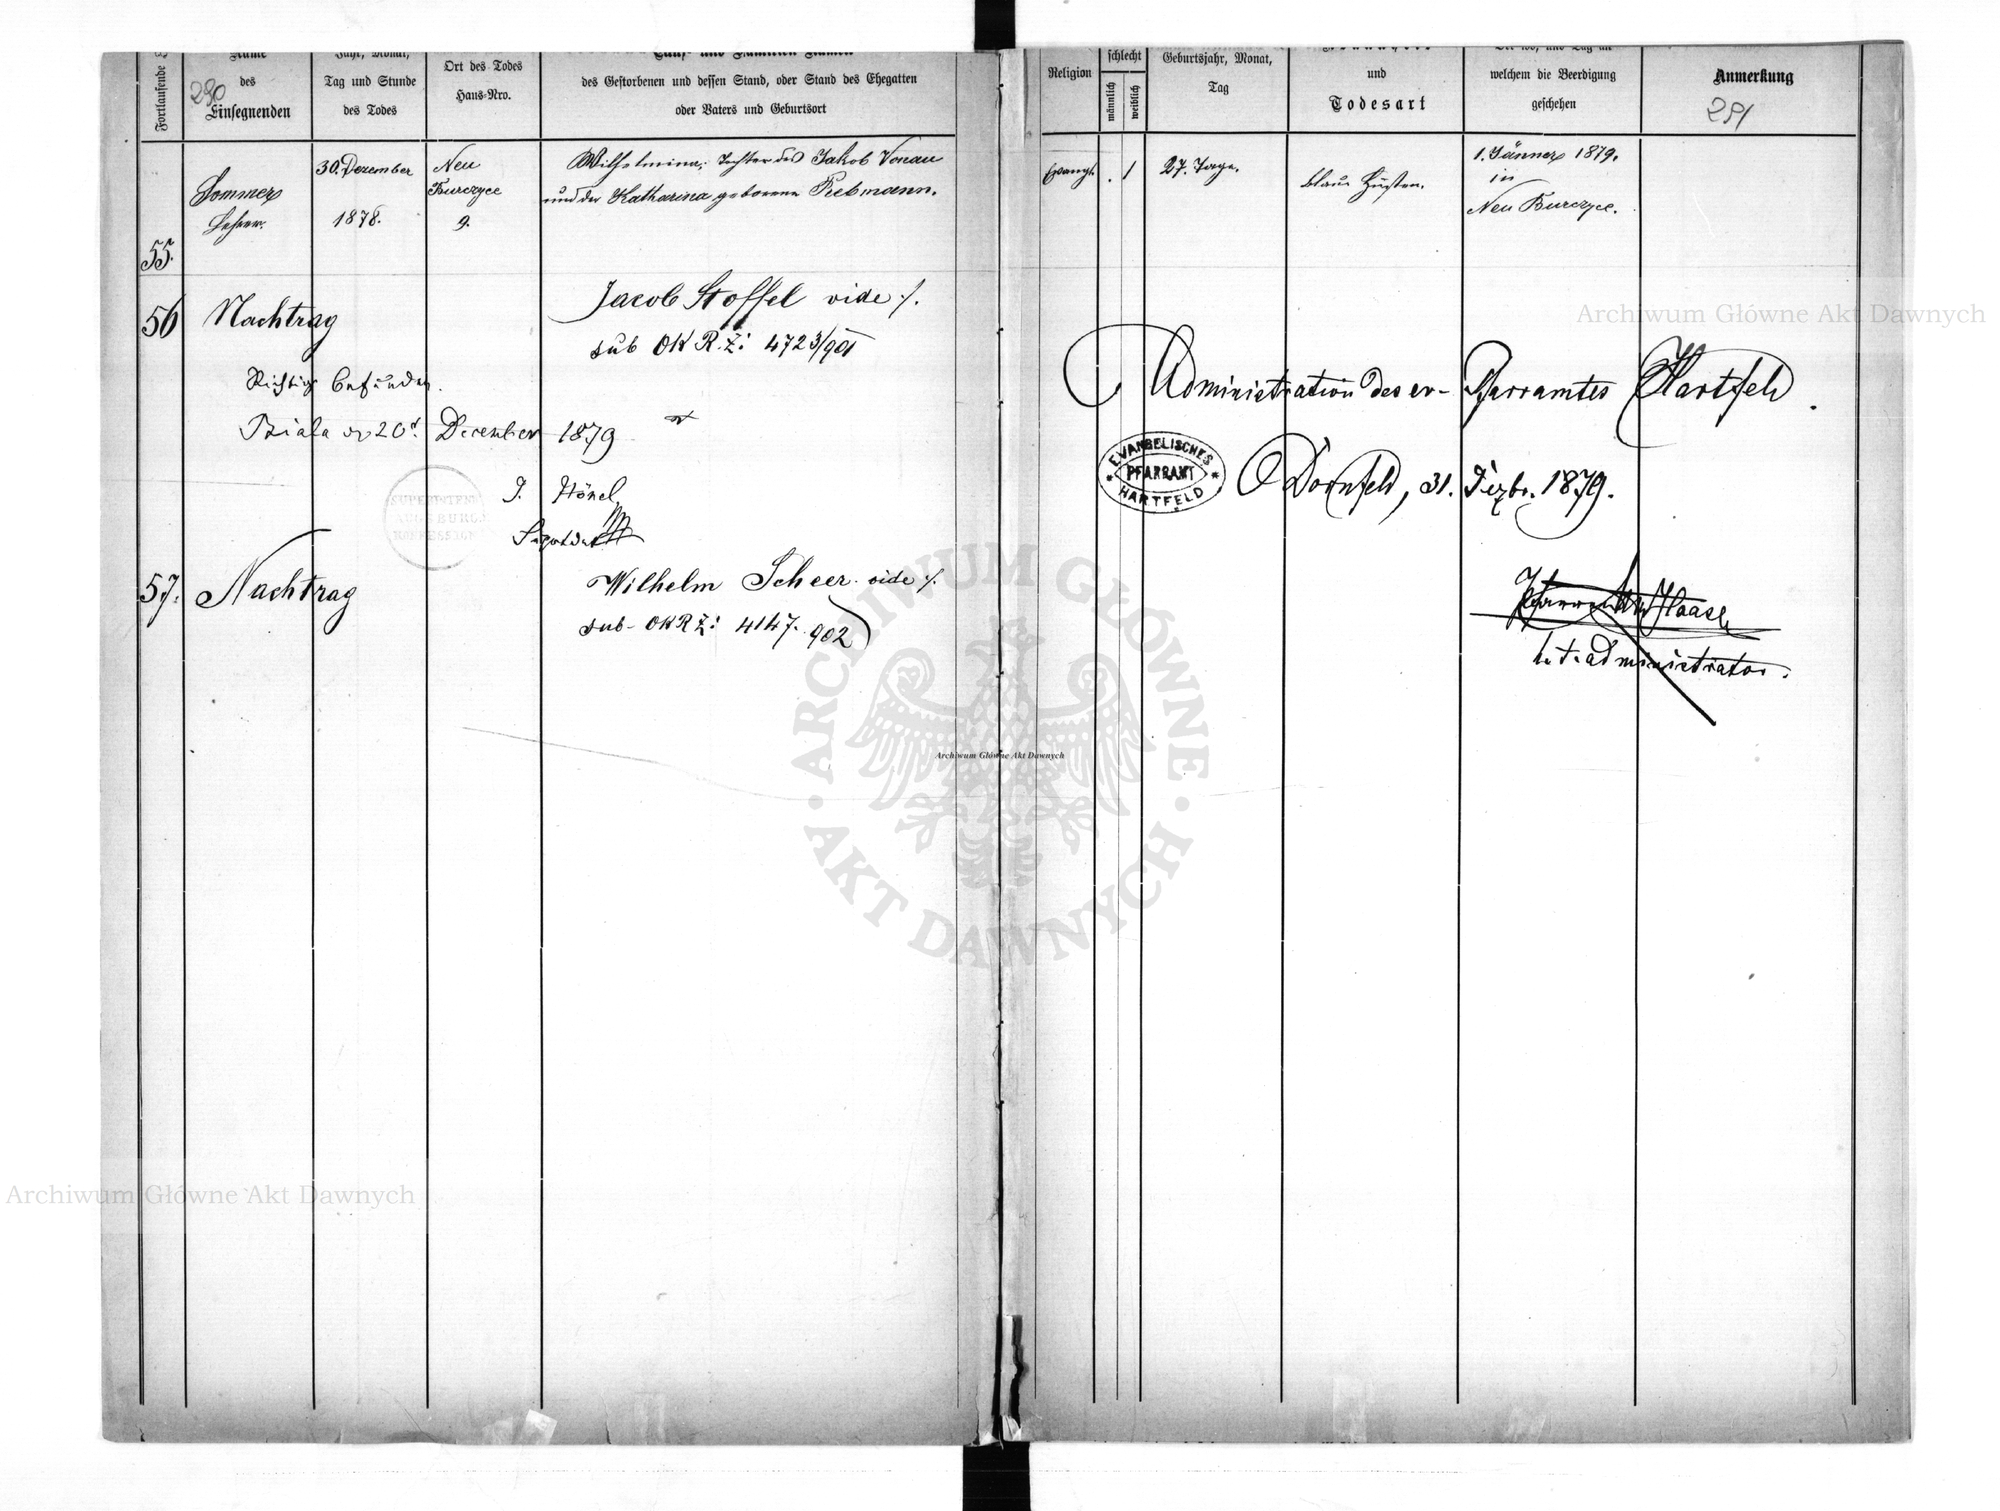 Fortlaufende
Name
des
Einsegnenden
290
Jahr, Monat,
Tag und Stunde
des Todes
Ort des Todes
Haus-Nro.
Tauf- und Familien-Namen
des Gestorbenen und dessen Stand, oder Stand des Ehegatten
oder Vaters und Geburtsort
Religion
schlecht
männlich
weiblich
Geburtsjahr, Monat,
Tag
und
Todesart
welchem die Beerdigung
geschehen
Anmerkung
291
55.
Sommer
Lehrer.
30. Dezember
1878.
Neu
Burczyce
9.
Wilhelmina, Tochter des Jakob Vonau
und der Katharina geborene
Evangl.
. 1
27. Tage.
blaue Husten.
1. Jänner 1879.
in
Neu Burczyce.
56 Nachtrag
Jacob Stoffel vide ./.
sub OKR.Z: 4723/901
Richtig befunden.
Biala 20 December 1879
SUPERINTEND
AUGSBURG
KONFESSION
J. Hönel
57. Nachtrag
Wilhelm Scheer vide ./.
sub OKRZ: 4147. 902
Administration des ev- Pfarramtes Hartfeld.
EVANGELISCHES
PFARRAMT
HARTFELD
Dornfeld, 31. Dezbr. 1879.
Haase
h. t. administrator.
Archiwum Główne Akt Dawnych
ARCHIWUM GŁÓWNE
AKT DAWNYCH
Archiwum Główne Akt Dawnych
Archiwum Główne Akt Dawnych